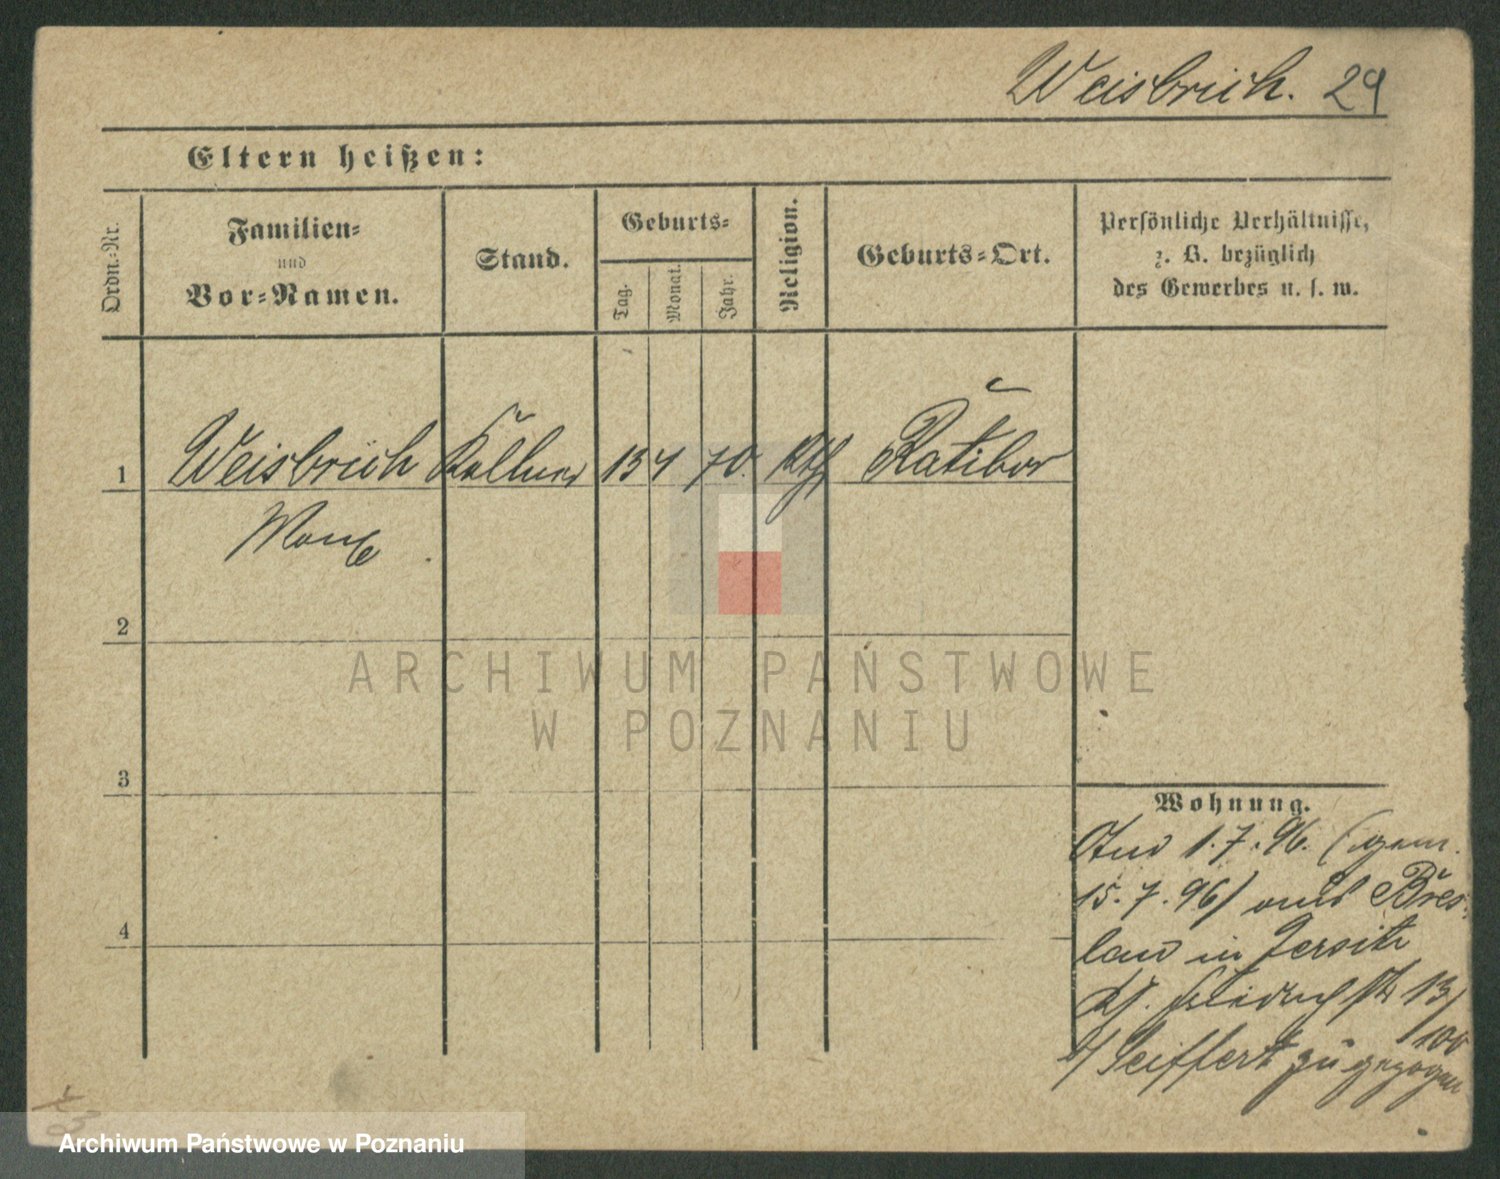 Weisbrich. 29
Eltern heißen:
Ordn.-Nr.
Familien-
und
Vor-Namen.
Stand.
Geburts-
Tag.
Monat.
Jahr.
Religion.
Geburts-Ort.
Persönliche Verhältnisse,
z. B. bezüglich
des Gewerbes u. s. w.
1 Weisbrich Kellner 13 4 70. Kth Ratibor
Max
2
3
4
Wohnung.
1.7.96. (gem.
15.7.96) aus Bres-
lau in Jersitz
Friedrichstr 13/
100
b/ Seiffert zugezogen
ARCHIWUM PAŃSTWOWE
W POZNANIU
Archiwum Państwowe w Poznaniu